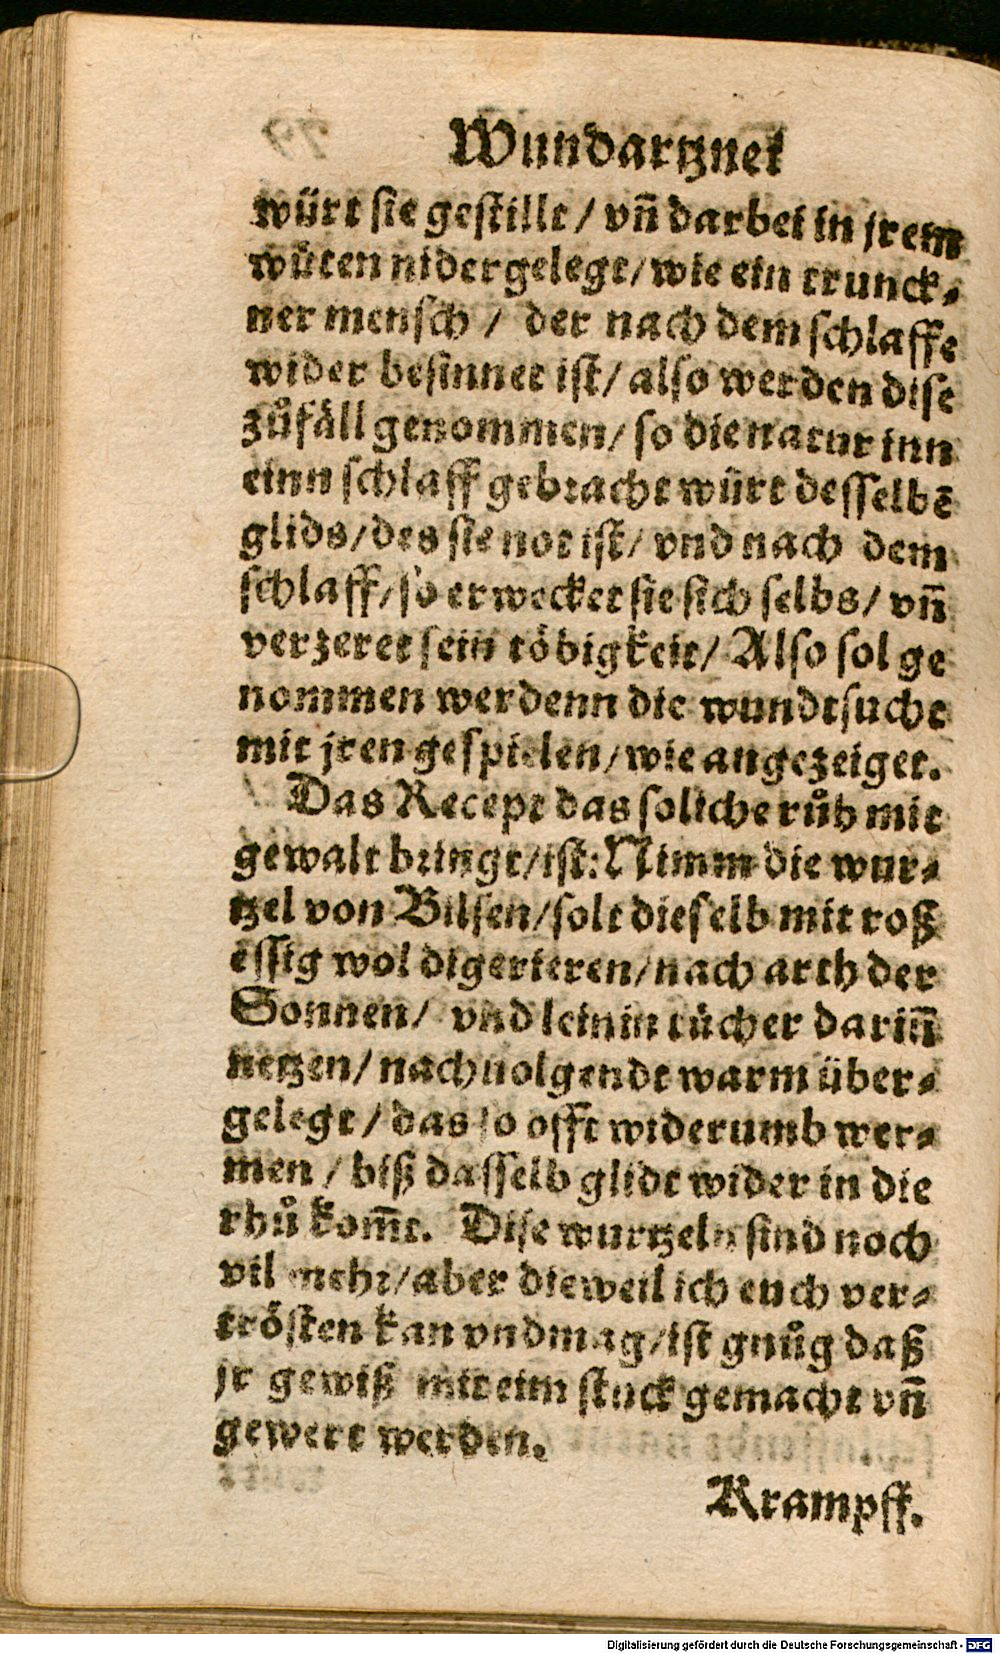 Wundartznei
würt sie gestillt / vñ darbei in jrem
wüten nidergelegt/ wie ein trunck⸗
ner mensch / der nach dem schlaffe
wider besinnet ist/ also werden dise
zůfäll genommen/ so die natur inn
einn schlaff gebracht würt desselbē
glids/ des sie not ist/ vnd nach dem
schlaff/ so erwecket sie sich selbs/ vñ
verzeret sein töbigkeit/ Also sol ge
nommen werdenn die wundtsucht
mit jren gespielen/ wie angezeiget.
Das Recept das soliche růh mit
gewalt bringt/ ist: Nimm die wur⸗
tzel von Bilsen/ solt dieselb mit roß
essig wol digerieren/ nach arth der
Sonnen/ vnd leinin tücher dariñ
netzen/ nachuolgendt warm über⸗
gelegt / das so offt widerumb wer⸗
men / biß dasselb glidt wider in die
rhů kom̃t. Dise wurtzeln sind noch
vil mehr/ aber dieweil ich euch ver⸗
trösten kan vnd mag/ ist gnůg daß
jr gewiß mit eim stuck gemacht vñ
gewert werden.
Krampff.
Digitalisierung gefördert durch die Deutsche Forschungsgemeinschaft - DFG